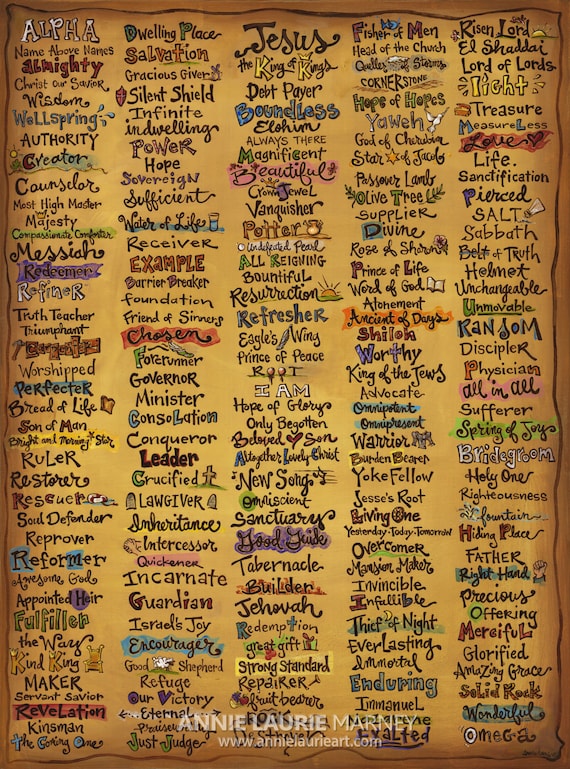 ALPHA
Name Above Names
almighty
Christ Our Savior
Wisdom
Wellspring
AUTHORITY
Creator
Counselor
Most High Master
Majesty
Compassionate Comforter
Messiah
Redeemer
Refiner
Truth Teacher
Triumphant
Carpenter
Worshipped
Perfecter
Bread of Life
Son of Man
Bright and Morning Star
Ruler
Restorer
Rescuer
Soul Defender
Reprover
Reformer
Awesome God
Appointed Heir
Fulfiller
the Way
Kind King
MAKER
Servant Savior
Revelation
Kinsman
the Coming One
Dwelling Place
Salvation
Gracious Giver
Silent Shield
Infinite
indwelling
Power
Hope
Sovereign
Sufficient
Water of Life
Receiver
EXAMPLE
Barrier Breaker
foundation
Friend of Sinners
Chosen
Forerunner
Governor
Minister
Consolation
Conqueror
Leader
Crucified
LAWGIVER
Inheritance
Intercessor
Quickener
Incarnate
Guardian
Israel's Joy
Encourager
Good Shepherd
Refuge
Our Victory
Eternal
Praiseworthy
Just Judge
Jesus
the King of Kings
Debt Payer
Boundless
Elohim
ALWAYS THERE
Magnificent
Beautiful
Crown Jewel
Vanquisher
Potter
Undefeated Pearl
All Reigning
Bountiful
Resurrection
Refresher
Eagle's Wing
Prince of Peace
ROOT
I AM
Hope of Glory
Only Begotten
Beloved Son
Altogether Lovely Christ
New Song
Omniscient
Sanctuary
Good Guide
Tabernacle
Builder
Jehovah
Redemption
great gift
Strong Standard
Repairer
fruit bearer
Destroyer
Fisher of Men
Head of the Church
Queller of Storms
CORNERSTONE
Hope of Hopes
Yaweh
God of Cherubim
Star of Jacob
Passover Lamb
Olive Tree
Supplier
Divine
Rose of Sharon
Prince of Life
Word of God
Atonement
Ancient of Days
Shiloh
Worthy
King of the Jews
Advocate
Omnipotent
Omnipresent
Warrior
Burden Bearer
Yoke Fellow
Jesse's Root
Living One
Yesterday·Today·Tomorrow
Overcomer
Mansion Maker
Invincible
Infallible
Thief of Night
EverLasting
Immortal
Enduring
Immanuel
Exalted
Risen Lord
El Shaddai
Lord of Lords
Light
Treasure
Measureless
Love
Life
Sanctification
Pierced
SALT
Sabbath
Belt of Truth
Helmet
Unchangeable
Unmovable
Random
Disciple
Physician
all in all
Sufferer
Spring of Joy
Bridegroom
Holy One
Righteousness
fountain
Hiding Place
FATHER
Right Hand
Precious
Offering
Merciful
Glorified
Amazing Grace
Solid Rock
Wonderful
Omega
ANNIE LAURIE MARNEY
www.annielaurieart.com